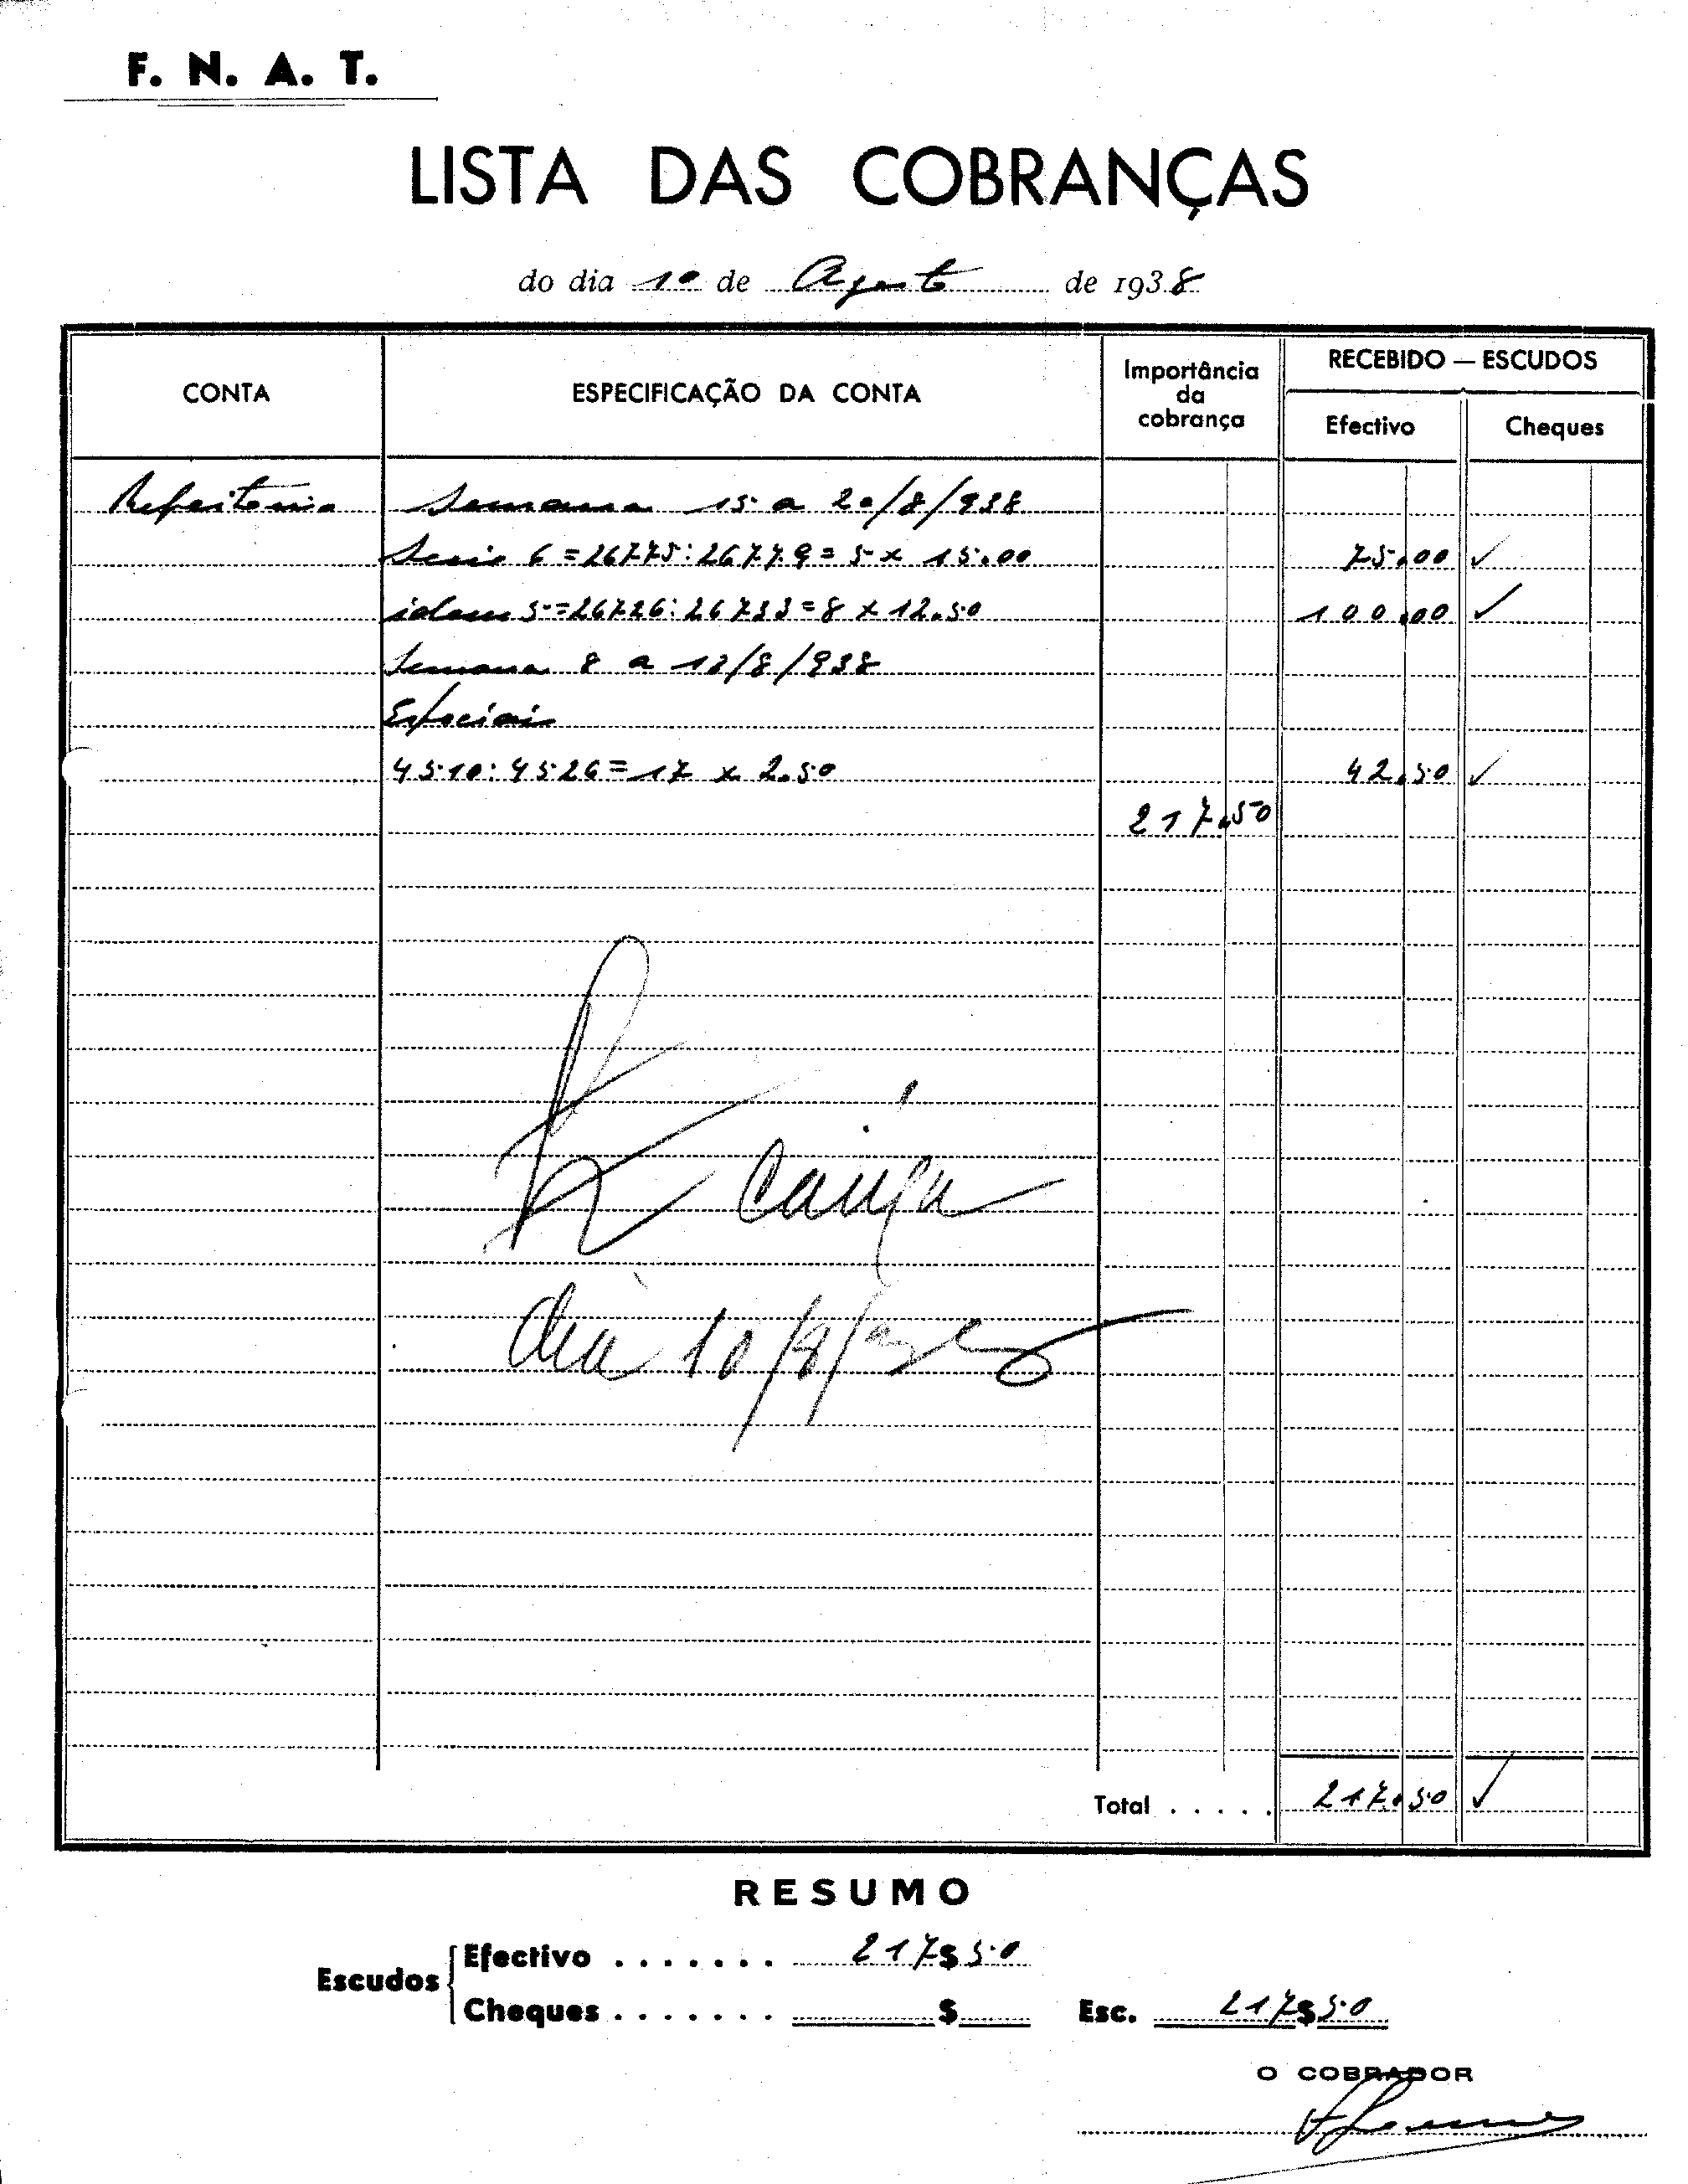 F. N. A. T.
LISTA DAS COBRANÇAS
do dia 10 de Agosto de 1938
CONTA ESPECIFICAÇÃO DA CONTA Importância da cobrança RECEBIDO — ESCUDOS
Efectivo Cheques
Refeitorio Semana 15 a 20/8/938
Serie 6 = 26775: 26779 = 5 x 15.00 75.00 ✓
idem 5 = 26726: 26733 = 8 x 12.50 100.00 ✓
Semana 8 a 13/8/938
Especiais
4510: 4526 = 17 x 2.50 42.50 ✓
217.50
Caixa
dia 10/8/938
Total . . . . . 217.50 ✓
RESUMO
Escudos
Efectivo . . . . . . . 217$50
Cheques . . . . . . . $ Esc. 217$50
O COBRADOR